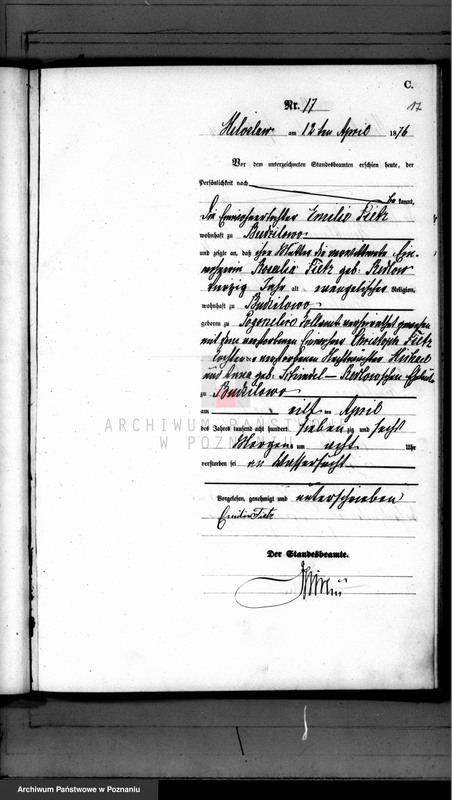 C.
Nr. 17
17
Miloslaw am 12ten April 1876
Vor dem unterzeichneten Standesbeamten erschien heute, der
Persönlichkeit nach
be kannt,
die Einwohnertochter Emilie Fietz
wohnhaft zu Budzilowo
und zeigte an, daß ihre Mutter die verwittwete Ein-
wohnerin Rosalie Fietz geb. Redlow
vierzig Jahr alt evangelischer Religion,
wohnhaft zu Budzilowo
geboren zu verheirathet gewesen
mit dem verstorbenen Einwohner Christoph Fietz
Tochter der verstorbenen Michael
und Anna geb. Schindel — Redlowschen Eheleute
zu Budzilowo
am eilf ten April
des Jahres tausend acht hundert sieben zig und sechs
Morgens um acht Uhr
verstorben sei an Wassersucht
Vorgelesen, genehmigt und unterschrieben
Emilie Fietz
Der Standesbeamte.
ARCHIWUM PAŃSTWOWE
W POZNANIU
Archiwum Państwowe w Poznaniu